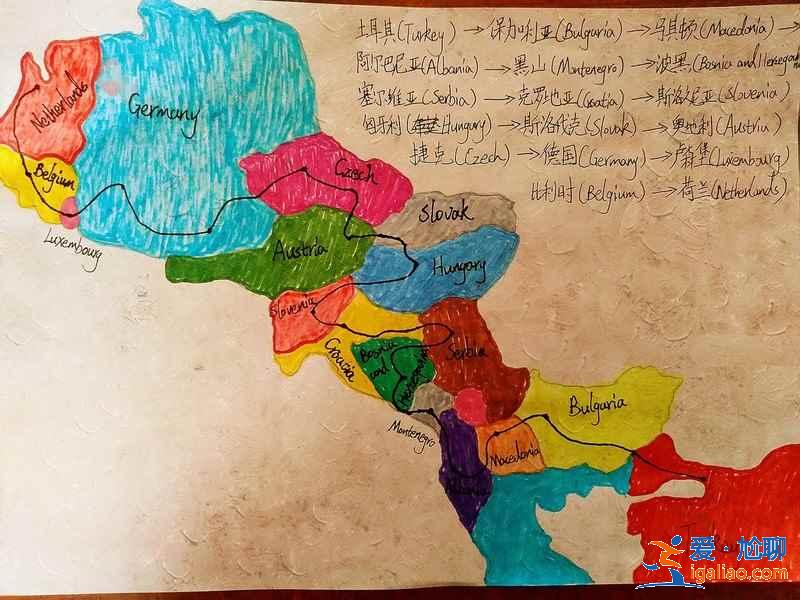 土耳其(Turkey) → 保加利亚(Bulgaria) → 马其顿(Macedonia) →
阿尔巴尼亚(Albania) → 黑山(Montenegro) → 波黑(Bosnia and Herzegovina)
塞尔维亚(Serbia) → 克罗地亚(Croatia) → 斯洛尼亚(Slovenia)
匈牙利(Hungary) → 斯洛伐克(Slovak) → 奥地利(Austria)
捷克(Czech) → 德国(Germany) → (Luxembourg)
比利时(Belgium) → 荷兰(Netherlands)
Netherlands
Germany
Belgium
Luxembourg
Czech
Slovak
Austria
Hungary
Slovenia
Croatia
Bosnia
and
Herzegovina
Serbia
Montenegro
Bulgaria
Macedonia
爱·尬聊
igaliao.com